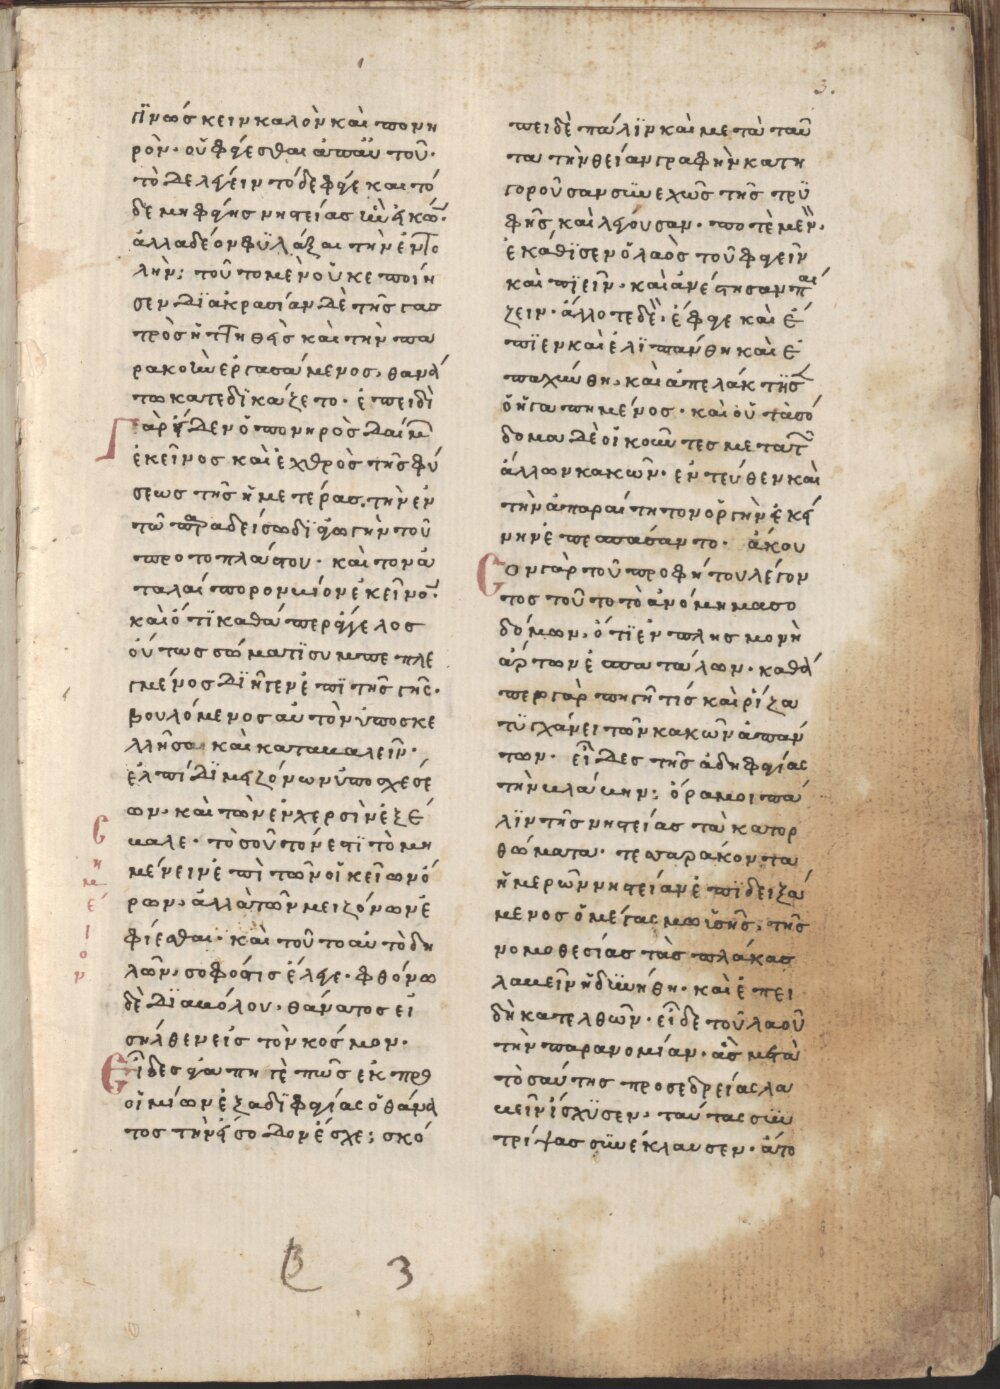 3.
γινώσκειν καλὸν καὶ πονη
ρόν· οὐ φάγεσθαι ἀπ' αὐτοῦ·
τὸ δε λέγειν τόδε φάγε καὶ τό
δε μὴ φάγης νηστείας
ἀλλα δέον φϋλάξαι τὴν ἐντο
λήν; τοῦτο μὲν οὐκ ἐποίη
σεν δϊ ἀκρασίαν δὲ τῆς γασ
τρὸς ἡττηθεὶς καὶ τὴν πα
ρακοὴν ἐργασάμενος, θανά
τω κατεδϊκάζετο· ἐπειδὶ
Γὰρ εἶδεν ὁ πονηρὸς δαίμων
ἐκεῖνος καὶ ἐχθρὸς τῆς φύ
σεως τῆς ἡμετέρας, τὴν ἐν
τῶ παραδείσω δϊαγωγὴν τοῦ
προτοπλάστου· καὶ τὸν ἀ
ταλαίπορον βίον ἐκεῖνον·
καὶ ὅτϊ καθάπερ ἄγγελος
οὕτως σώματϊ συμπεπλε
γμένος δϊῆγεν ἐπϊ τῆς γῆς·
βουλόμενος αὐτὸν ὑποσκε
λῆσαι καὶ καταβαλεῖν·
ἐλπίδϊ μειζόνων ὑποσχέσε
ων· καὶ τῶν ἐν χερσὶν ἐξέ
βαλε· τοσοῦτόν ἐστϊ τὸ μὴ
μένειν ἐπὶ τῶν οἰκείων ὅ
ρων, ἀλλὰ τῶν μειζόνων ἐ
φίεσθαι· καὶ τοῦτο αὐτὸ δη
λῶν, σοφός τις ἔλεγε· φθόνω
δὲ δϊαβόλου· θάνατος εἰ
σῆλθεν εἰς τὸν κόσμον·
Εἶδες ἀγαπητὲ πῶς ἐκ προ
οιμίων ἐξ αδϊφαγίας ὁ θάνα
τος τὴν εἴσοδον ἔσχε; σκό
σημεῖον
πει δὲ πάλϊν καὶ μετὰ ταῦ
τα τὴν θείαν γραφὴν κατη
γοροῦσαν συνεχῶς τῆς τρυ
φῆς, καὶ λέγουσαν· ποτὲ μὲν,
ἐκάθϊσεν ὁ λαὸς τοῦ φαγεῖν
καὶ πϊεῖν· καὶ ἀνέστησαν παί
ζειν· ἄλλοτε δὲ· ἔφαγε καὶ ἔ
πϊεν καὶ ἐλϊπάνθη καὶ ἐ
παχύνθη, καὶ ἀπελάκτϊσεν
ὁ ἠγαπημένος· καὶ οἱ τὰ σό
δομα δὲ οἰκοῦντες μετὰ τῶν
ἄλλων κακῶν· ἐντεύθεν καὶ
τὴν ἀπαραίτητον ὀργὴν ἐκεί
νην ἐπεσπάσαντο· ἄκου
Σον γὰρ τοῦ προφήτου λέγον
τος τοῦτο τὸ ἀνόμημα σο
δόμων, ὅτϊ ἐν πλησμονῆ
ἄρτων ἐσπατάλων· καθά
περ γὰρ πηγή τίς καὶ ρίζα
τϋγχάνει τῶν κακῶν ἁπάν
των· εἶδες τῆς ἀδηφαγίας
τὴν βλάβην; ὅρα μοι πά
λϊν τῆς νηστείας τὰ κατορ
θώματα· τεσσαράκοντα
ἡμερῶν νηστείαν ἐπϊδειξά
μενος ὁ μέγας μωϊσῆς, τῆς
νομοθεσίας τὰς πλάκας
λαβεῖν ἠδϋνήθη· καὶ ἐπει
δὴ κατελθῶν· εἶδε τοῦ λαοῦ
τὴν παρανομίαν· ἃς μετὰ
τοσαύτης προσεδρείας λα
βεῖν ἴσχϋσεν, ταύτας συν
τρίψας συνέκλαυσεν· ἄτο
3